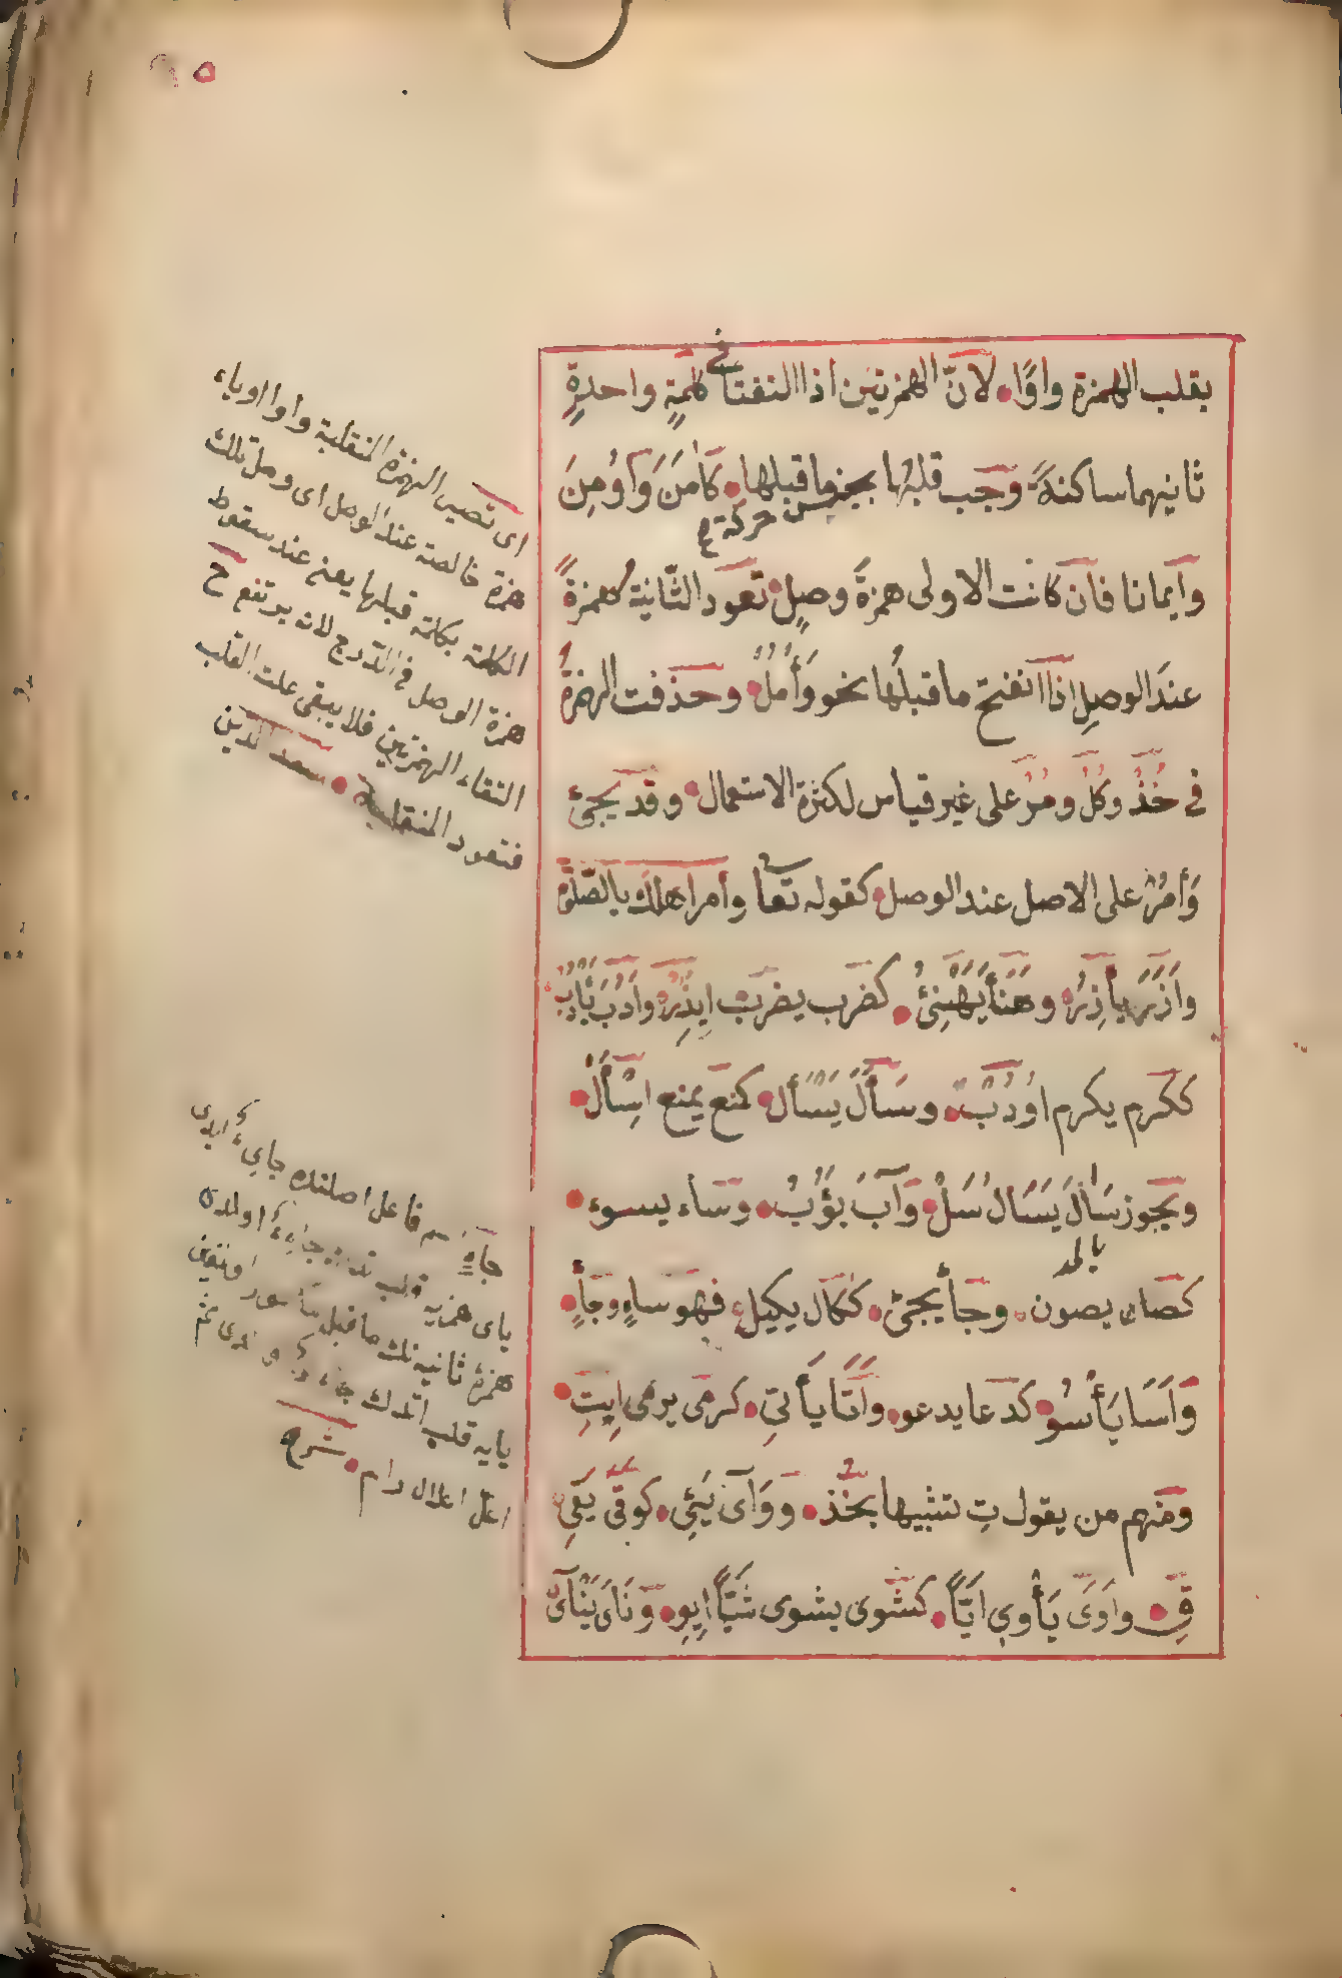 ٦٥
بقلب الهمزة واوًا لانّ الهمزتين اذا التقتا في كلمةٍ واحدةٍ
ثانيهما ساكنةً وَجب قلبُها بجنس حركة ما قبلها كَاٰمَنَ وَاُوْمِنَ
وايمانا فان كانت الاولى همزةَ وصلٍ تعود الثّانية همزةً
عندَ الوصلِ اذا انفتح ما قبلُها نحو وَأْمُلْ وحذفت الهمزةُ
في خُذْ وكُلْ ومُرْ على غير قياس لكثرة الاستعمال وقد يجئ
وَأْمُرْ على الاصل عند الوصل كقوله تعا وأمر اهلك بالصّلوة
واَزَرَ يأزِرُ وهَنَأَ يَهْنِئُ كضرب يضرب اِيزِرْ واَدُبَ يَأْدُبُ
ككرم يكرم اُوْدُبْ وسَأَلَ يَسْأَلُ كمنع يمنع اِسْأَلْ
ويجوز سَالَ يَسَالُ سَلْ وَآبَ يَؤُبُ وساء يسوء
كصان يصون وجاء يجئ ككال يكيل فهو ساءٍ وجاءٍ
بالمد
وَاَسَا يَأْسُو كدعا يدعو واَتَا يأتي كرمى يرمى اِيتِ
ومنهم من يقول تِ تشبيها بخُذ ووَآى يَئِي كوقَى يَقِى
قِ واَوَى يَأْوِي اَيًّا كشوى يشوى شَيًّا اِيوِ ونَاَى يَنْاَى
اى تصير الهمزة المنقلبة واوا او ياء
همزة خالصة عند الوصل اى وصل تلك
الكلمة بكلمة قبلها يعنى عند سقوط
همزة الوصل في الدّرج لانه يرتفع ح
التقاء الهمزتين فلا يبقى علت القلب
فتعود المنقلبة سعد الدين
جاءٍ اسم فاعل اصلنده جايِئٌ ايدى
ياى همزيه قلب جاءِءٌ اولدى
همزۀ ثانيه نك ما قبلى مكسور اولدغيچون
يايه قلب اتدك جاءِىٌ اولدى ثم
اعل اعلال رام شرح